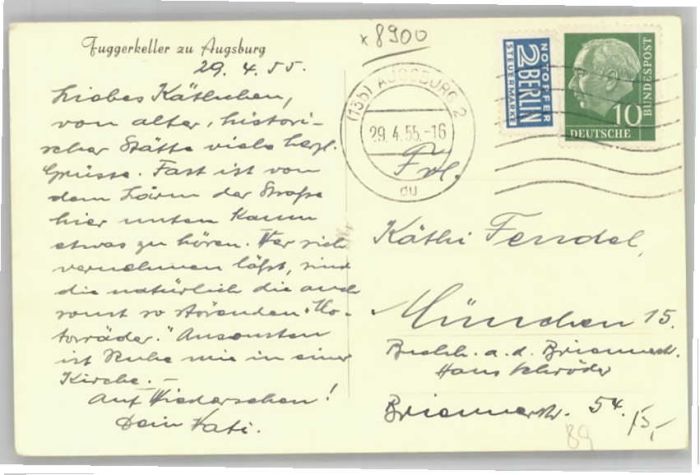 Fuggerkeller zu Augsburg
29. 4. 55.
Liebes Käthchen,
von alter, histori-
scher Stätte viele herzl.
Grüsse. Fast ist von
dem Lärm der Straße
hier unten kaum
etwas zu hören. Wer sich
vernehmen läßt, sind
die natürlich die auch
sonst so störenden "Mo-
torräder." Ansonsten
ist Ruhe wie in einer
Kirche. –
Auf Wiedersehen!
Dein Vati.
x 8900
(13b) AUGSBURG 2
29.4.55-16
du
NOTOPFER
2 BERLIN
STEUERMARKE
10
DEUTSCHE
BUNDESPOST
Frl.
Käthi Fendel,
München 15.
Buchh. a. d. Briennerstr.
Hans Schröder
Briennerstr. 54.
15,-
89